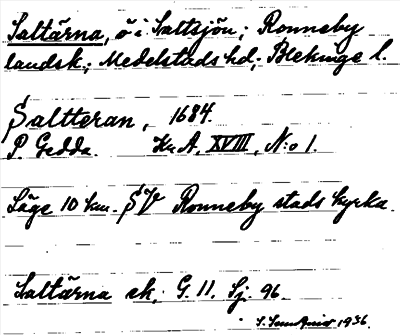 Saltärna, ö i Saltsjön; Ronneby
landsk; Medelstads hd; Blekinge l.
Saltteran, 1684.
P. Gedda. Kr. A, XVIII, N:o 1.
Läge 10 km. SV Ronneby stads kyrka.
Saltärna ek. G. 11. Sj. 96.
1936.